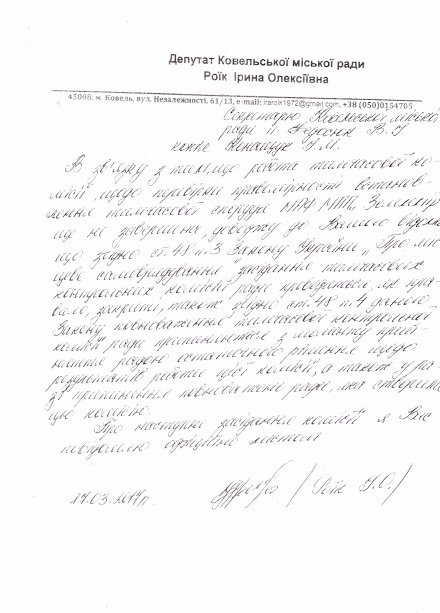 Депутат Ковельської міської ради
Роїк Ірина Олексіївна
45008, м. Ковель, вул. Незалежності, 61/13, e-mail: iraroik1972@gmail.com, +38 (050)0154705
Секретарю Ковельської міської
ради п. Федосюк В. Г.
В зв'язку з тим, що робота тимчасової ко-
місії щодо перевірки правомірності встанов-
лення тимчасової споруди
ще не завершена, доводжу до Вашого відома
що згідно ст. 48 п. 3 Закону України „Про міс-
цеве самоврядування засідання тимчасових
контрольних комісій ради проводяться, як пра-
вило, закриті, також згідно ст. 48 п. 4 даного
Закону повноваження тимчасової контрольної
комісії ради припиняються з моменту прий-
няття радою остаточного рішення щодо
результатів роботи цієї комісії, а також у ра-
зі припинення повноважень ради, яка створила
цю комісію.
Про наступне засідання комісії я Вас
повідомлю офіційно листом
/Роїк І. О./